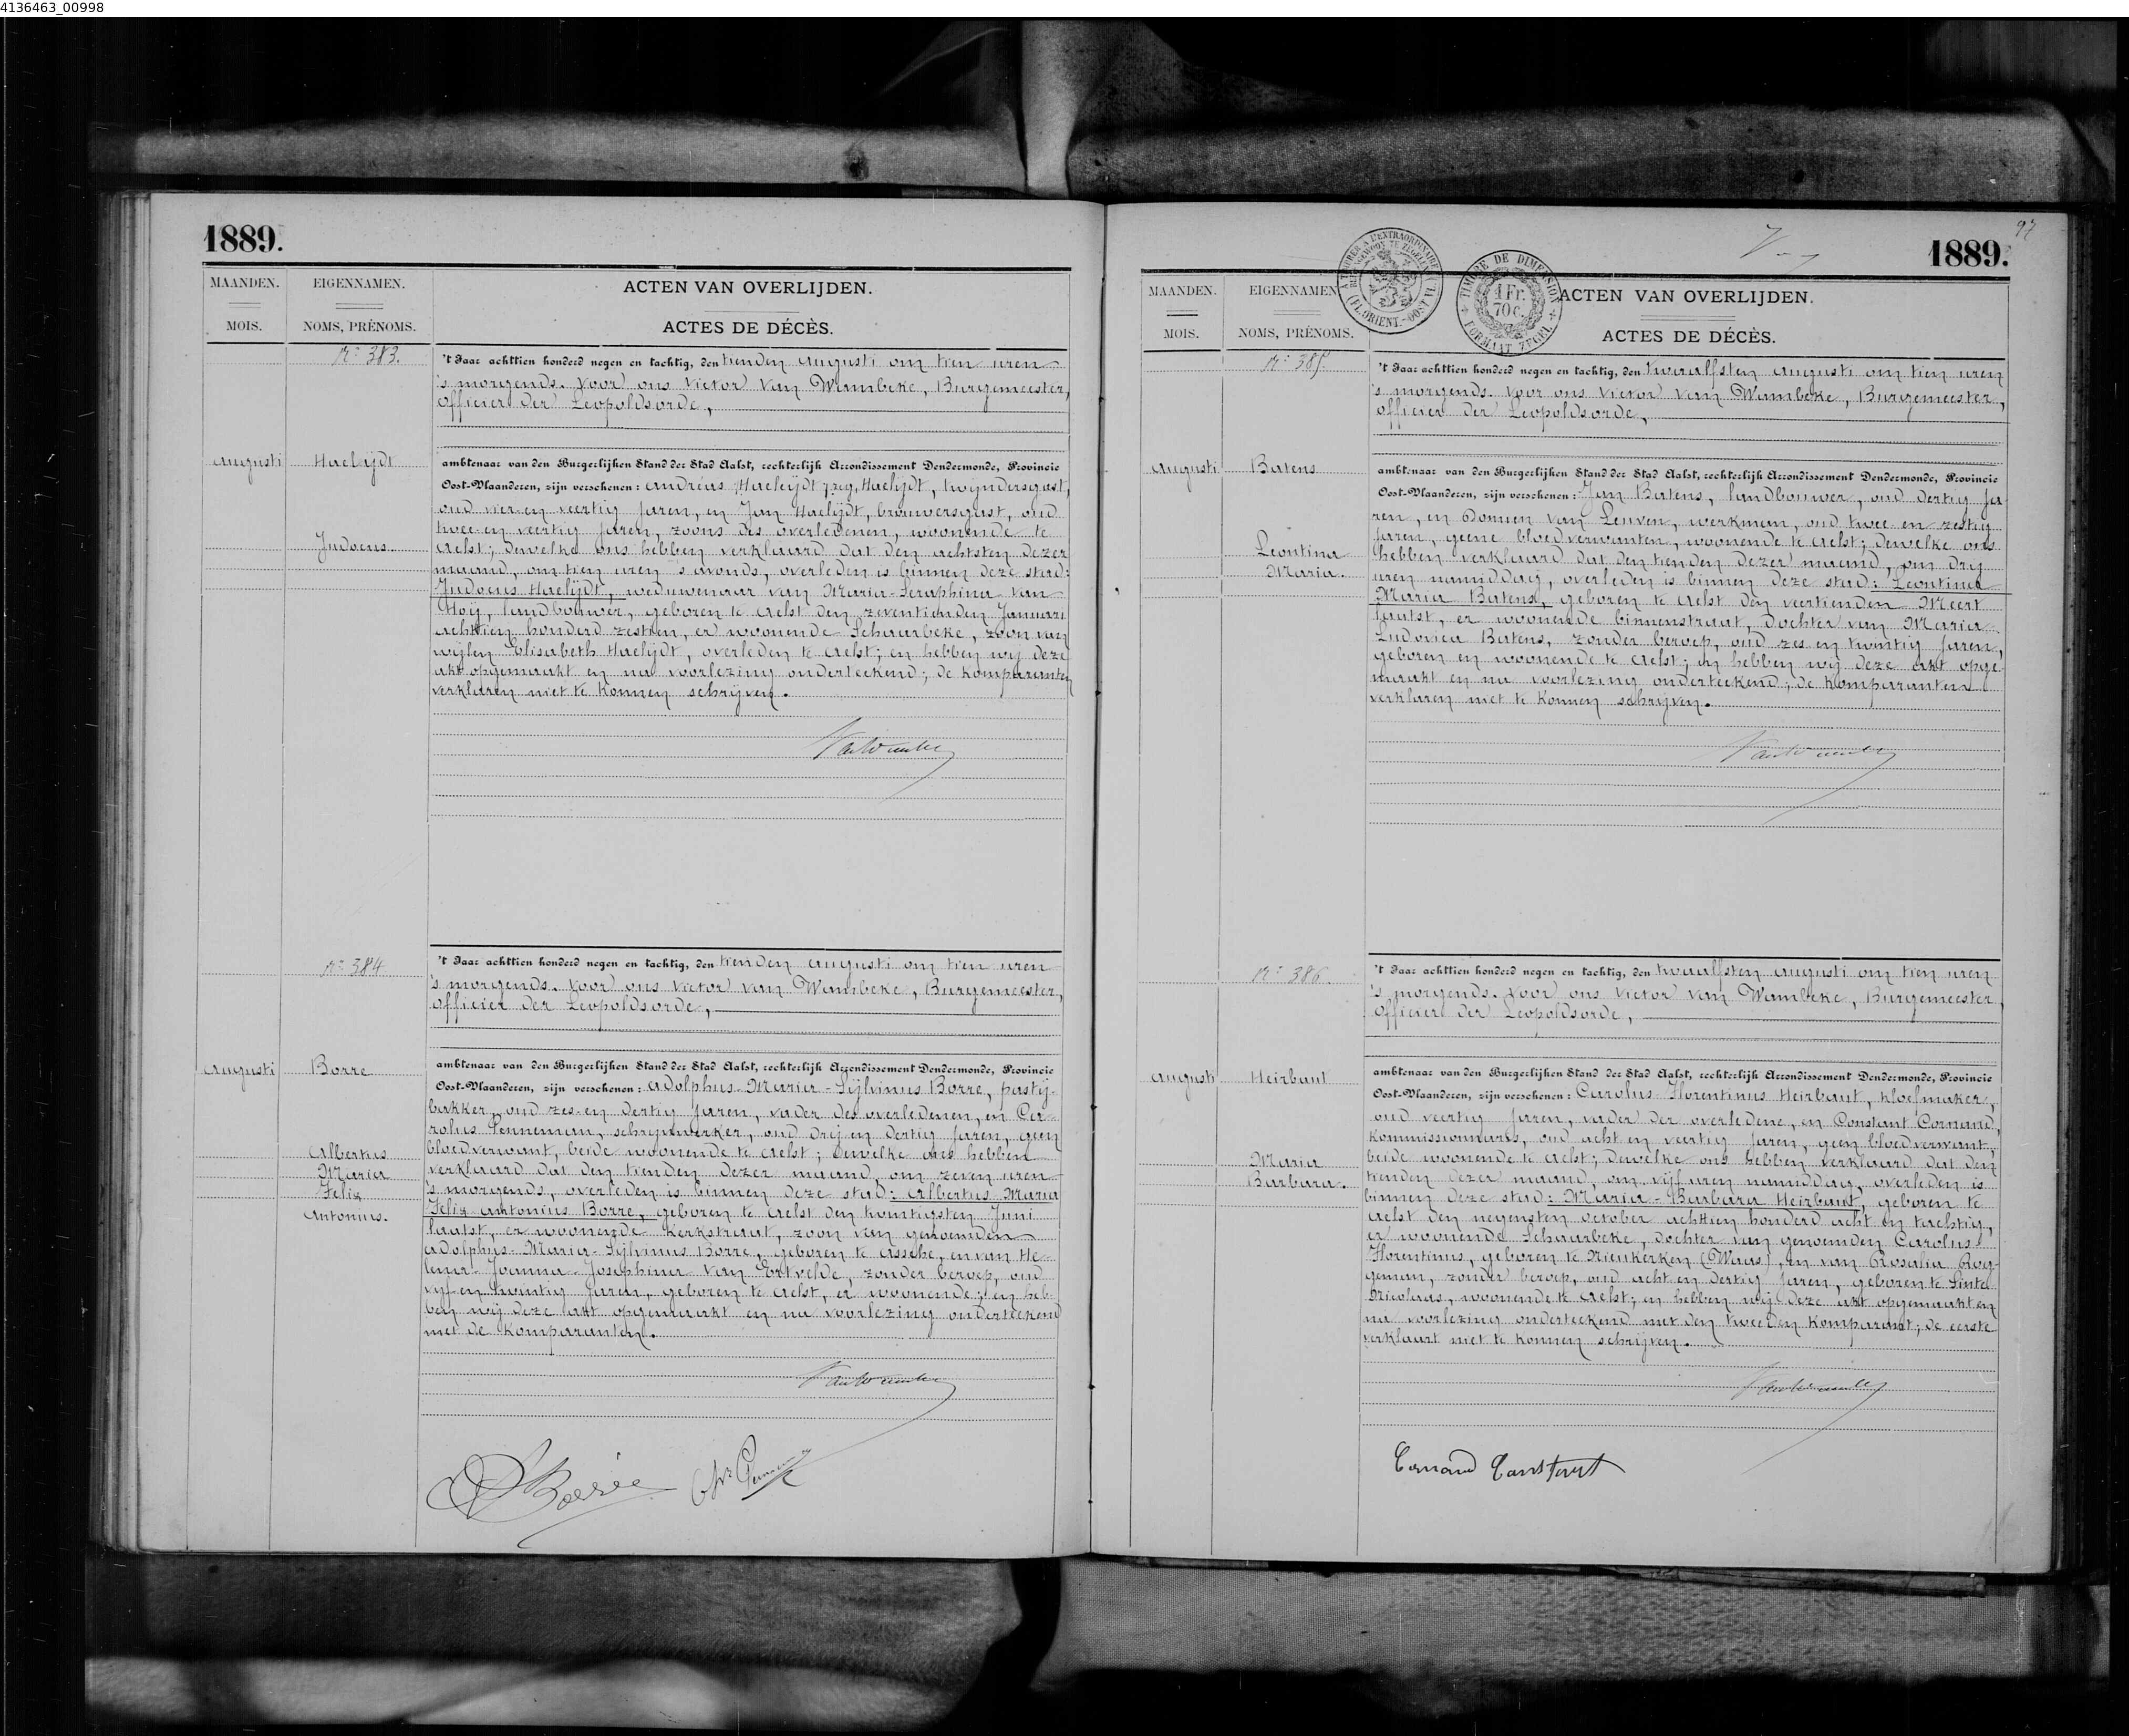 4136463_00998
1889.
MAANDEN.
MOIS.
EIGENNAMEN.
NOMS, PRÉNOMS.
ACTEN VAN OVERLIJDEN.
ACTES DE DÉCÈS.
No 383.
Augusti
Haelijdt
Judocus
't Jaar achttien honderd negen en tachtig, den tienden Augusti om tien uren
's morgends. Voor ons Victor Van Wambeke, Burgemeester,
officier der Leopoldsorde,
ambtenaar van den Burgerlijken Stand der Stad Aalst, rechterlijk Arrondissement Dendermonde, Provincie
Oost-Vlaanderen, zijn verschenen: Andreas Haeleijdt, zeg, Haelijdt, twijndersgast,
oud vier en veertig jaren, en Jan Haelijdt, brouwersgast, oud
twee en veertig jaren, zoons des overledenen, woonende te
Aelst; dewelke ons hebben verklaard dat den achtsten dezer
maand, om tien uren 's avonds, overleden is binnen deze stad:
Judocus Haelijdt, weduwenaar van Maria-Seraphina Van
Hoij, landbouwer, geboren te Aelst den zeventienden Januari
achttien honderd zestien, er woonende Schaarbeke, zoon van
wijlen Elisabeth Haelijdt, overleden te Aelst; en hebben wij deze
akt opgemaakt en na voorlezing onderteekend; de komparanten
verklaren niet te konnen schrijven.
VanWambeke
No 384
Augusti
Borre
Albertus
Maria
Felix
Antonius.
't Jaar achttien honderd negen en tachtig, den tienden Augusti om tien uren
's morgends. Voor ons Victor Van Wambeke, Burgemeester,
officier der Leopoldsorde,
ambtenaar van den Burgerlijken Stand der Stad Aalst, rechterlijk Arrondissement Dendermonde, Provincie
Oost-Vlaanderen, zijn verschenen: Adolphus-Maria-Sijlvinus Borre, pastij-
bakker, oud zes en dertig jaren, vader des overledenen, en Ca-
rolus Penneman, schrijnwerker, oud drij en dertig jaren, geen
bloedverwant, beide woonende te Aelst; dewelke ons hebben
verklaard dat den tienden dezer maand, om zeven uren
's morgends, overleden is binnen deze stad: Albertus Maria
Felix Antonius Borre, geboren te Aelst den twintigsten Juni
laatst, er woonende Kerkstraat, zoon van genoemden
Adolphus-Maria-Sijlvinus Borre, geboren te Assche, en van He-
lena-Joanna-Josephina Van Ertvelde, zonder beroep, oud
vijf en twintig jaren, geboren te Aelst, er woonende; en heb-
ben wij deze akt opgemaakt en na voorlezing onderteekend
met de komparanten.
VanWambeke
1889.
97
A TIMBRER A L'EXTRAORDINAIRE
(FL. ORIENT.-OOST VL.)
TIMBRE DE DIMENSION
1 Fr.
70 c.
FORMAAT ZEGEL
MAANDEN.
MOIS.
EIGENNAMEN
NOMS, PRÉNOMS.
ACTEN VAN OVERLIJDEN.
ACTES DE DÉCÈS.
No 385.
Augusti
Batens
Leontina
Maria.
't Jaar achttien honderd negen en tachtig, den twaalfsten Augusti om tien uren
's morgends. Voor ons Victor Van Wambeke, Burgemeester,
officier der Leopoldsorde,
ambtenaar van den Burgerlijken Stand der Stad Aalst, rechterlijk Arrondissement Dendermonde, Provincie
Oost-Vlaanderen, zijn verschenen: Jan Batens, landbouwer, oud dertig ja-
ren, en Domien Van Leuven, werkman, oud twee en zestig
jaren, geene bloedverwanten, woonende te Aelst; dewelke ons
hebben verklaard dat den tienden dezer maand, om drij
uren namiddag, overleden is binnen deze stad: Leontina
Maria Batens, geboren te Aelst den veertienden Meert
laatst, er woonende binnenstraat, dochter van Maria-
Ludovica Batens, zonder beroep, oud zes en twintig jaren,
geboren en woonende te Aelst; en hebben wij deze akt opge-
maakt en na voorlezing onderteekend; de komparanten
verklaren niet te konnen schrijven.
VanWambeke
No 386.
Augusti
Heirbaut
Maria
Barbara.
't Jaar achttien honderd negen en tachtig, den twaalfsten Augusti om tien uren
's morgends. Voor ons Victor Van Wambeke, Burgemeester,
officier der Leopoldsorde,
ambtenaar van den Burgerlijken Stand der Stad Aalst, rechterlijk Arrondissement Dendermonde, Provincie
Oost-Vlaanderen, zijn verschenen: Carolus-Florentinus Heirbaut, kloefmaker,
oud veertig jaren, vader der overledene, en Constant Cornand,
kommissionnaris, oud acht en veertig jaren, geen bloedverwant,
beide woonende te Aelst; dewelke ons hebben verklaard dat den
tienden dezer maand, om vijf uren namiddag, overleden is
binnen deze stad: Maria-Barbara Heirbaut, geboren te
Aelst den negensten october achttien honderd acht en tachtig,
er woonende Schaarbeke, dochter van genoemden Carolus-
Florentinus, geboren te Nieukerken (Waas), en van Rosalia Rog-
geman, zonder beroep, oud acht en dertig jaren, geboren te Sinte
Nicolaas, woonende te Aelst; en hebben wij deze akt opgemaakt en
na voorlezing onderteekend met den tweeden komparant; de eerste
verklaart niet te konnen schrijven.
VanWambeke
Cornand Constant